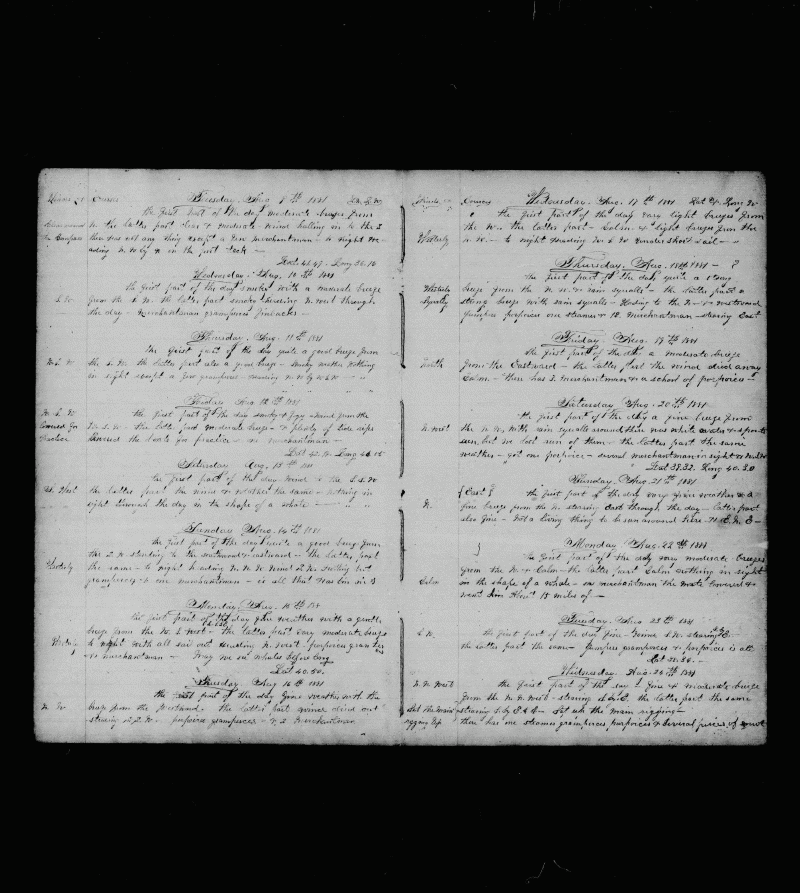 Winds &c Courses Tuesday, Aug. 9th 1881
the first part of the day moderate breeze from
the latter part clear & moderate wind hauling in to the S
the Compass there was not any thing except a few merchantmen - to night He-
ading N.W by N in the first Reck -
Lat. 41.47. Long 38.16
Wednesday, Aug. 10th 1881
the first part of the day smokey with a moderate breeze
S.W from the S.W. the latter part smokey steering N. west through
the day - Merchantman grampuses finbacks -
Thursday, Aug. 11th 1881
the first part of the day quite a good breeze from
the S.W. the latter part also a good breeze - smoky weather nothing
in sight except a few grampuses - steering N.W by W
Friday Aug 12th 1881
the first part of the day smoky & foggy - wind from the
Lowered for W.S.W. - the latter part moderate breeze - & plenty of tide rips
Practice lowered the boats for practice - one merchantman -
Lat 42.16 Long 46.05
Saturday Aug. 13th 1881
the first part of the day wind to the S.S.W
the latter part the wind & weather the same - nothing in
sight through the day in the shape of a whale
Sunday Aug. 14th 1881
the first part of the day quite a good breeze from
the S.W. steering to the southward & eastward - the latter part
Westerly the same - to night heading N.W. wind nothing but
grampuses & one merchantman - is all that was seen
Monday, Aug. 15th 188
the first part of the day fine weather with a gentle
breeze from the W.S. west - the latter part very moderate breeze
Westerly to night with all sail out heading N. west - porpoises grampuses
& merchantman - May we see whales before long
Lat 40.50.
Tuesday Aug 16th 1881
the first part of the day fine weather with the
N. W breeze from the Westward - the latter part wind died out
steering S.S.W. porpoises grampuses - & 2 Merchantman
Courses Wednesday. Aug. 17th 1881 Lat Long
the first part of the day very light breezes from
the W., the latter part - Calm - & light breezes from the
Westerly N.W. - to night heading W.S.W under short sail -
Thursday, Aug. 18th 1881 -
the first part of the day quite a
Westerly breeze from the N.W. & rain squalls - the latter part a
Squally strong breeze with rain squalls - Heading to the N. & westward
finbacks porpoises one steamer & 12 merchantman - steering East
Friday Aug. 19th 1881
the first part of the day a moderate breeze
North from the Eastward - the latter part the wind died away
Calm - there was 3 merchantman & a school of porpoises -
Saturday Aug. 20th 1881
the first part of the day a fine breeze from
N. west the N.W. with rain squalls around there was white water & spouts
seen, but we lost run of them - & the latter part the same
weather - got one porpoise - several merchantman in sight
Lat 39.32. Long 40.30
Sunday Aug. 21th 1881
East the first part of the day very fine weather & a
N. fine breeze from the N. steering East through the day - latter part
also fine - Not a living thing to be seen around here E. N. E -
Monday Aug. 22th 1881
the first part of the day very moderate breezes
from the N. & Calm - the latter part calm nothing in sight
Calm in the shape of a whale - one merchantman the mate lowered &
went him About 15 miles of -
Tuesday Aug 23th 1881
S.W. the first part of the day fine - wind S.W. steering E.
the latter part the same - finbacks grampuses & porpoises is all
Lat 38.34. -
Wednesday, Aug. 24th 1881
N. N. West the first part of the day fine & moderate breeze
from the N. N. West - steering S.E. the latter part the same
Set the Main steering S. by E & E - Set up the main rigging -
rigging Up there was one steamer grampuses, porpoises & several pieces of